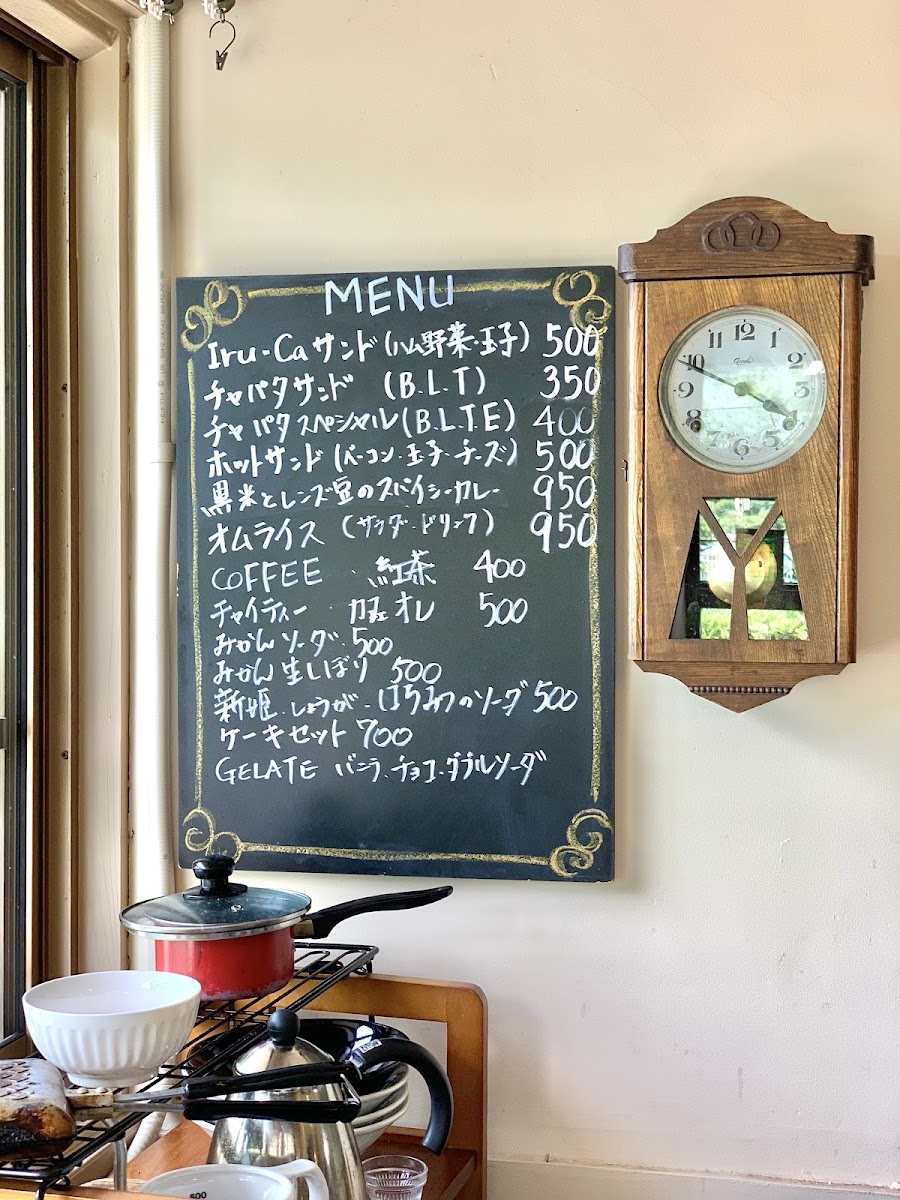 MENU
Iru-Caサンド(ハム野菜・玉子) 500
チャパタサンド (B.L.T) 350
チャパタスペシャル(B.L.T.E) 400
ホットサンド(ベーコン・玉子・チーズ) 500
黒米とレンズ豆のスパイシーカレー 950
オムライス (サラダ・ドリンク) 950
COFFEE 紅茶 400
チャイティー カフェオレ 500
みかんソーダ 500
みかん生しぼり 500
新姫・しょうが・はちみつのソーダ 500
ケーキセット 700
GELATE バニラ・チョコ・ダブルソーダ
12
1
2
3
5
6
8
9
10
11
500